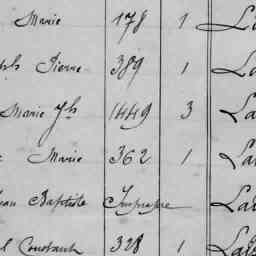 Marie 178 1 L
ph Pierre 389 1 La
Marie Jh 1449 3 La
Marie 362 1 La
ean Baptiste Impropre Lau
l Constant 328 1 Lau